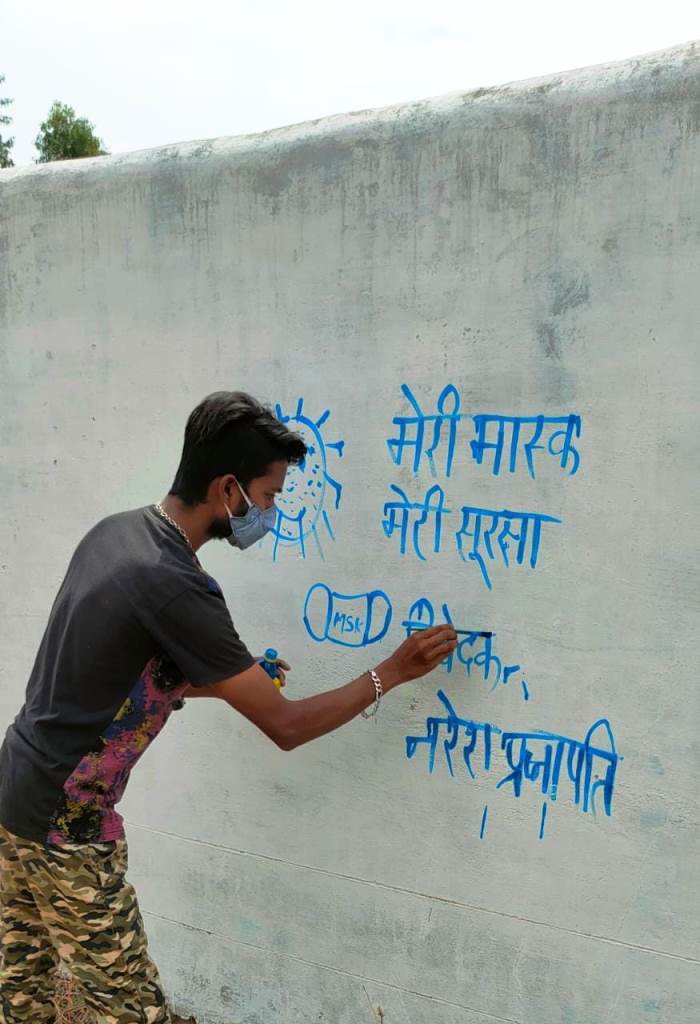 मेरी मास्क
मेरी सूरक्षा
MSK
निवेदक
नरेश प्रजापति